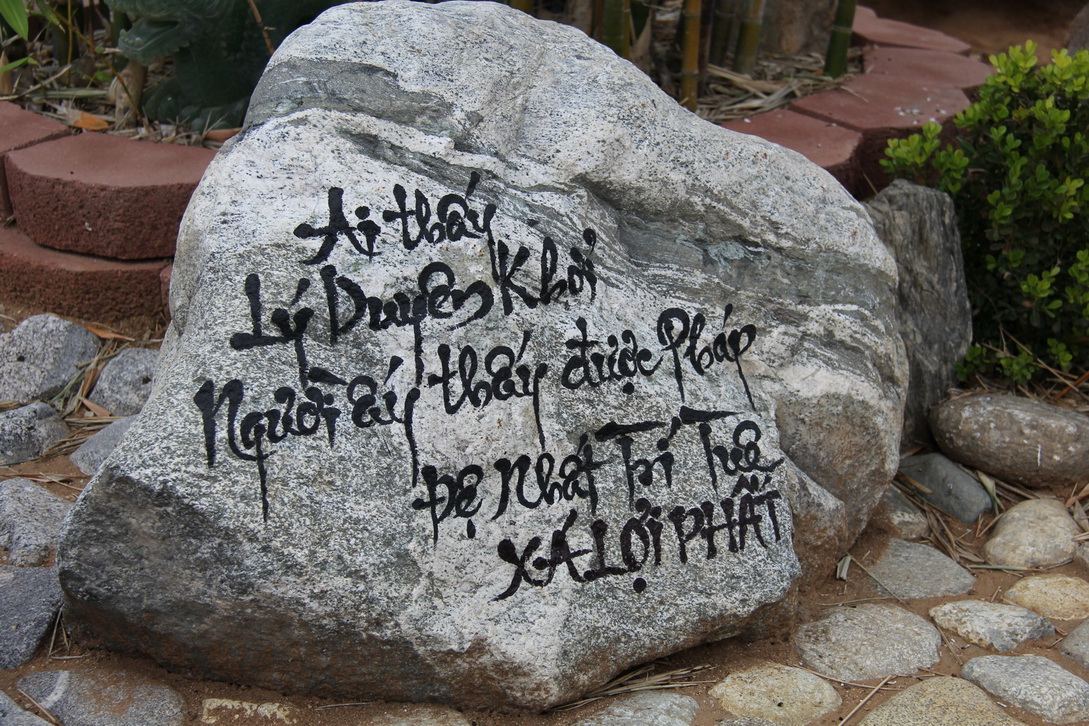 Ai thấy
Lý Duyên Khởi
Người ấy thấy được Pháp
Đệ Nhất Trí Tuệ
XÁ LỢI PHẤT